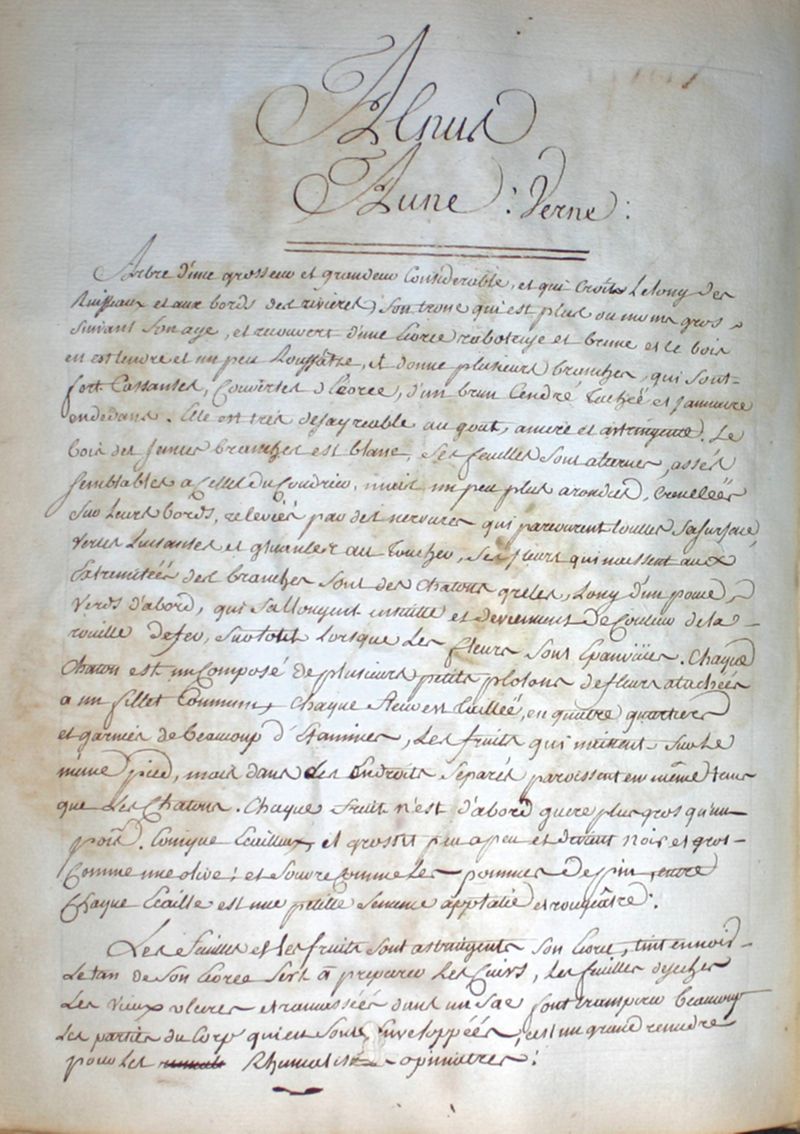 Alnus
Aune : Verne :
Arbre d'une grosseur et grandeur Considerable, et qui Croits Le long des
Ruisseaux et aux bords des rivieres, son tronc qui est plus ou moins gros
suivant son age, et recouvert d'une Ecorce rabotteuse et brune et le bois
en est tendre et un peu Roussâtre, il donne plusieurs branches, qui sont
fort Cassantes, Couvertes d'Ecorce, d'un brun Cendré tachée et jaunatre
en dedans. Elle est tres desagreable au gout, amere et astringente. Le
bois des jeunes branches est blanc, Ses feuilles sont alternes, assés
semblables a Celles du Coudrier, mais un peu plus arondies, Crenelées
sur Leurs bords, relevées par des nervures qui parcourent toutes sa surface
vertes Luisantes et gluantes au Toucher, Ses fleurs qui naissent aux
Extremitées des branches sont des Chatons greles, Long d'un pouce,
Verds d'abord, qui s'allongent ensuitte et deviennent de Couleur de la
rouille de fer, surtout Lorsque Les fleurs sont Epanuies. Chaque
Chaton est un Composé de plusieurs petits plotons de fleurs atachées
a un fillet Commun, Chaque fleur est taillée, en quatre quartiers
et garnies de beaucoup d'Etamines, Les fruits qui naissent sur le
même pied, mais dans des Endroits separés paroissent en même tems
que Les Chatons. Chaque fruit n'est d'abord guere plus gros qu'un
pois. Conique Ecailleux, il grossit peu a peu et devient Noir et gros
Comme une olive; et s'ouvre Comme Les pommes de pin, entre
Chaque Ecaille est une petite Semence applatie et rougeâtre.
Les feuilles et Les fruits sont astringents son Ecorce, tint en noir
Le tan de son Ecorce sert à preparer Les Cuirs, Les feuilles
Les vieux ulceres et ramassées dans un Sac font transpirer beaucoup
Les parties du Corp qui en sont Enveloppées, C'est un grand remede
pour Les Rhumatismes opiniatres.